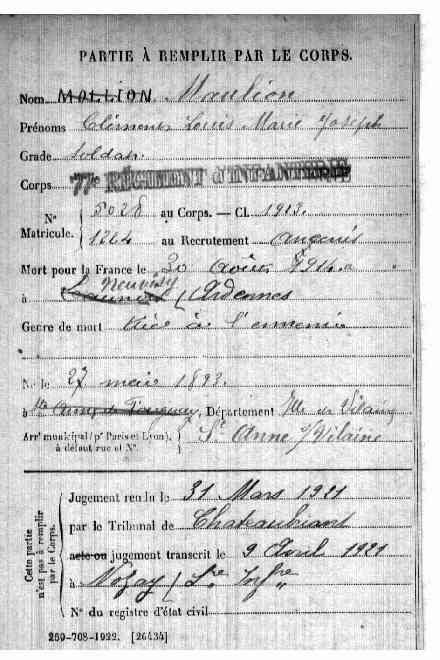 PARTIE À REMPLIR PAR LE CORPS.
Nom MOLLION Maulion
Prénoms Clément Louis Marie Joseph
Grade soldat.
Corps 77e RÉGIMENT d'INFANTERIE
N° Matricule. 5028 au Corps. — Cl. 1913.
1264 au Recrutement Ancenis
Mort pour la France le 30 Août 1914
Neuvisy
à (Ardennes
Genre de mort tué à l'ennemi
Né le 27 mai 1893.
à Département Ille et Vilaine
Arrt municipal (pr Paris et Lyon), à défaut rue et N°. Ste Anne s/Vilaine
Cette partie n'est pas à remplir par le Corps.
Jugement rendu le 31 Mars 1921
par le Tribunal de Chateaubriant
acte ou jugement transcrit le 9 Avril 1921
à Nozay (Lre Infre
N° du registre d'état civil
259-708-1922. [26434]